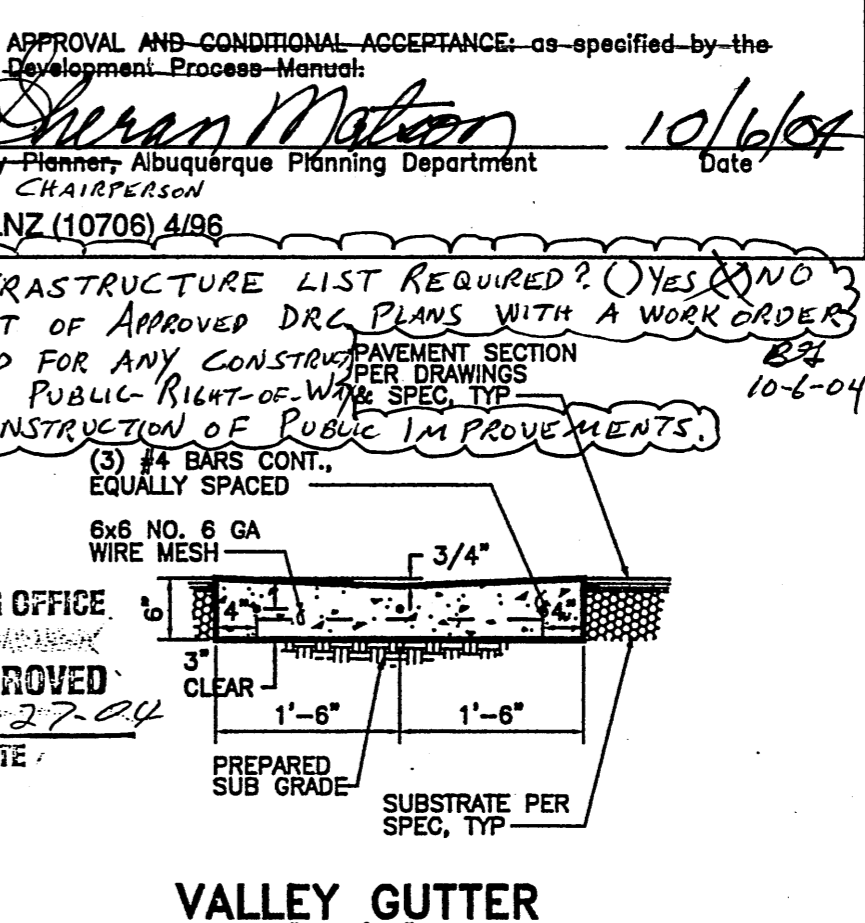 APPROVAL AND CONDITIONAL ACCEPTANCE: as specified by the
Development Process Manual.
Sheran Matson 10/6/04
Planner, Albuquerque Planning Department Date
CHAIRPERSON
(10706) 4/96
LIST REQUIRED? () YES (X) NO
OF APPROVED DRC PLANS WITH A WORK ORDER
FOR ANY
PUBLIC RIGHT-OF-WAY
10-6-04
OF PUBLIC IMPROVEMENTS.
PAVEMENT SECTION
PER DRAWINGS
& SPEC, TYP
(3) #4 BARS CONT.,
EQUALLY SPACED
6x6 NO. 6 GA
WIRE MESH
3/4"
6"
4"
4"
3"
CLEAR
1'-6"
1'-6"
PREPARED
SUB GRADE
SUBSTRATE PER
SPEC, TYP
OFFICE
27-04
VALLEY GUTTER